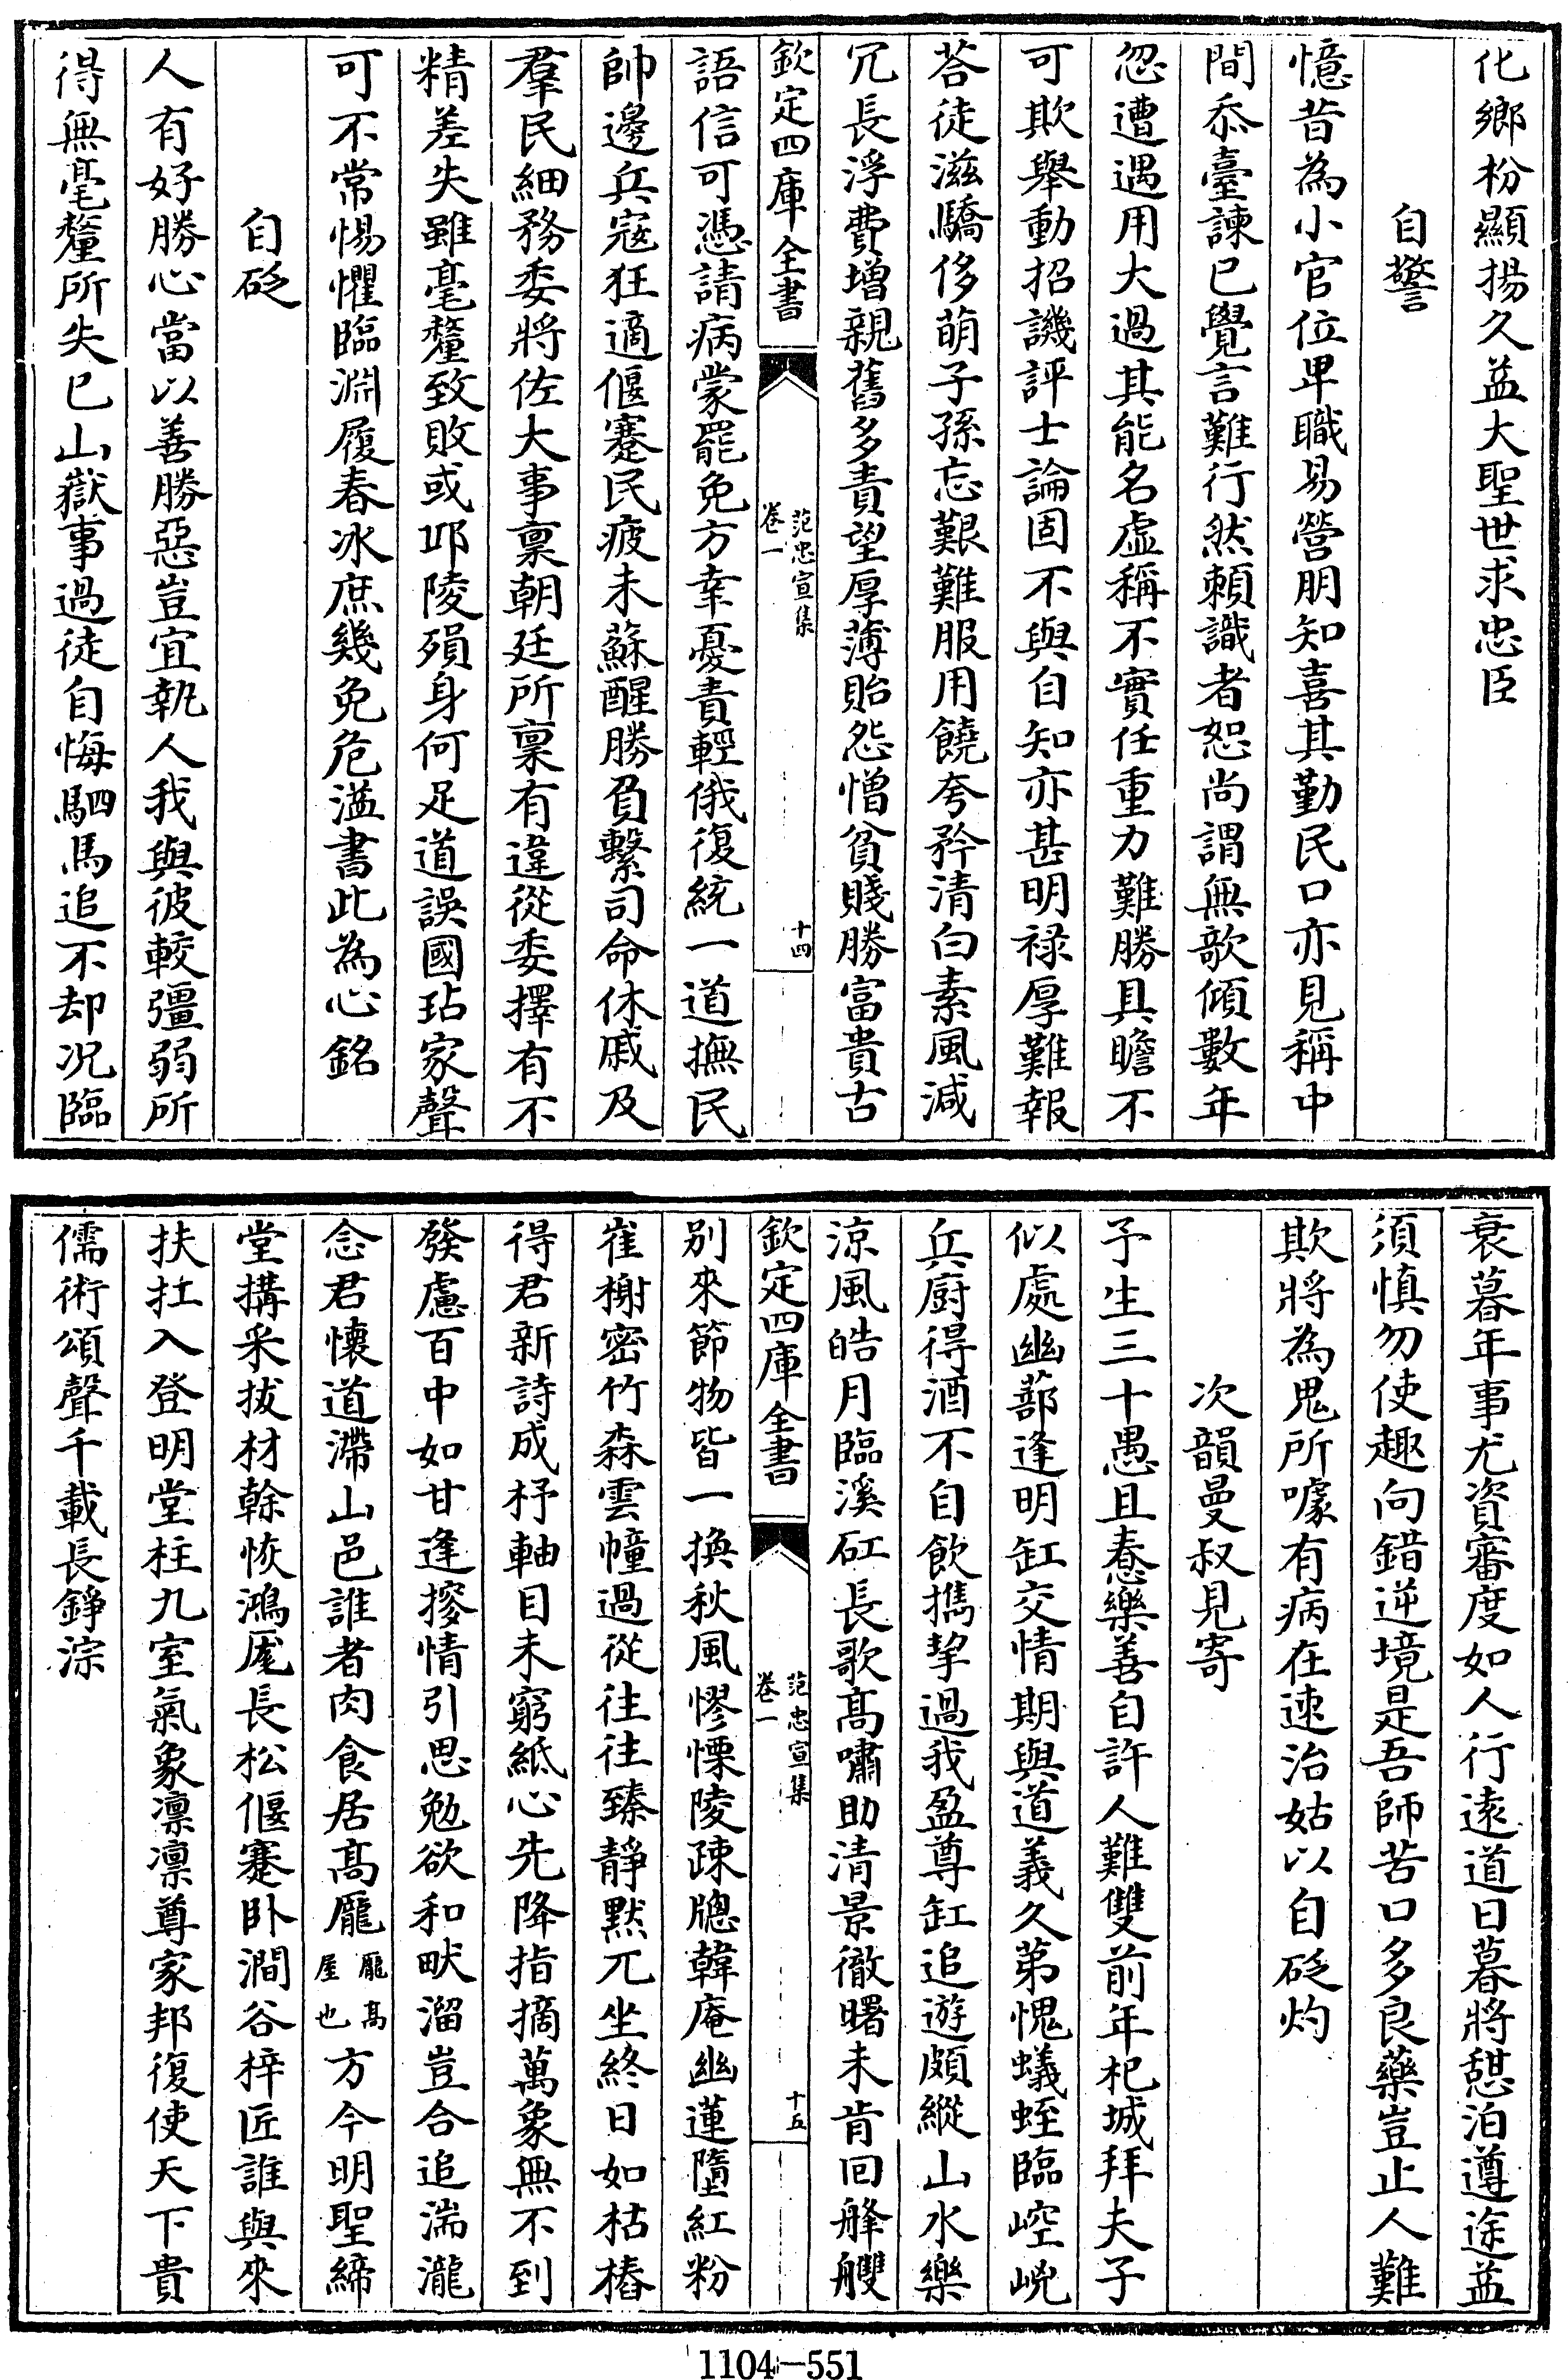 化鄉枌顯揚久益大聖世求忠臣
自警
憶昔為小官位卑職易營朋知喜其勤民口亦見稱中
間忝臺諫已覺言難行然賴識者恕尚謂無欹傾數年
忽遭遇用大過其能名虛稱不實任重力難勝具瞻不
可欺舉動招譏評士論固不與自知亦甚明禄厚難報
荅徒滋驕侈萌子孫忘艱難服用饒夸矜清白素風減
冗長浮費增親舊多責望厚薄貽怨憎貧賤勝富貴古
欽定四庫全書
范忠宣集
卷一
十四
語信可憑請病蒙罷免方幸憂責輕俄復統一道撫民
帥邊兵宼狂適偃蹇民疲未蘇醒勝負繫司命休戚及
羣民細務委將佐大事稟朝廷所稟有違從委擇有不
精差失雖毫釐致敗或邛陵殞身何足道誤國玷家聲
可不常惕懼臨淵履春冰庶幾免危溢書此為心銘
自砭
人有好勝心當以善勝惡豈宜執人我與彼較彊弱所
得無毫釐所失已山嶽事過徒自悔駟馬追不却况臨
衰暮年事尤資審度如人行逺道日暮將憇泊遵途益
須慎勿使趣向錯逆境是吾師苦口多良藥豈止人難
欺將為鬼所噱有病在速治姑以自砭灼
次韻曼叔見寄
予生三十愚且惷樂善自許人難雙前年杞城拜夫子
似處幽蔀逢明缸交情期與道義久苐愧蟻蛭臨崆峣
兵厨得酒不自飲攜挈過我盈尊缸追遊頗縱山水樂
涼風皓月臨溪矼長歌髙嘯助清景徹曙未肯回艂艭
欽定四庫全書
范忠宣集
卷一
十五
别來節物皆一換秋風憀慄陵疎牕韓庵幽蓮墮紅粉
崔榭密竹森雲幢過從往往臻靜黙兀坐終日如枯樁
得君新詩成杼軸目未窮紙心先降指摘萬象無不到
發慮百中如甘逄摎情引思勉欲和畎溜豈合追湍瀧
念君懷道滯山邑誰者肉食居髙龎龎髙屋也方今明聖締
堂搆采拔材榦恢鴻厖長松偃蹇卧澗谷梓匠誰與來
扶扛入登明堂柱九室氣象凛凛尊家邦復使天下貴
儒術頌聲千載長錚淙
1104-551